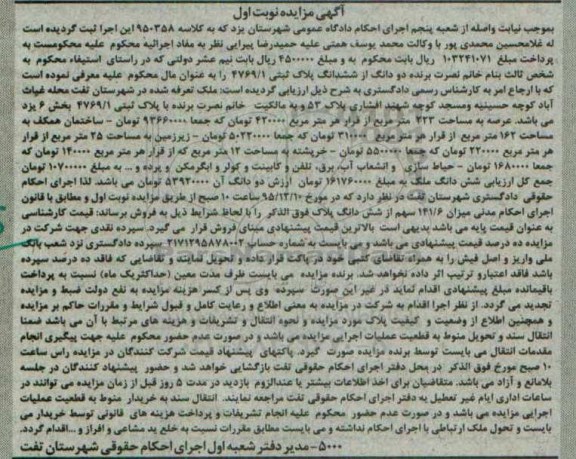 آگهی مزایده نوبت اول
بموجب نیابت واصله از شعبه پنجم اجرای احکام دادگاه عمومی شهرستان یزد که به کلاسه ۹۵۰۳۵۸ این اجرا ثبت گردیده است
له غلامحسین محمدی پور با وکالت محمد یوسف همتی علیه حمیدرضا پیرایی نظر به مفاد اجرائیه محکوم علیه محکومست به
پرداخت مبلغ ۱۰۳۳۴۱۰۷۱ ریال بابت محکوم به و مبلغ ۴۵۰۰۰۰۰ ریال بابت نیم عشر دولتی که در راستای استیفاء محکوم به
شخص ثالث بنام خانم نصرت برنده دو دانگ از ششدانگ پلاک ثبتی ۴۷۶۹/۱ را به عنوان مال محکوم علیه معرفی نموده است
که با ارجاع امر به کارشناس رسمی دادگستری به شرح ذیل ارزیابی گردیده است: ملک تعرفه شده در شهرستان تفت محله غیاث
آباد کوچه حسینیه ومسجد کوچه شهید افشاری پلاک ۵۳ و به مالکیت خانم نصرت برنده با پلاک ثبتی ۴۷۶۹/۱ بخش ۶ یزد
می باشد. عرصه به مساحت ۲۲۳ متر مربع از قرار هر متر مربع ۴۲۰۰۰۰ تومان که جمعا ۹۳۶۶۰۰۰۰ تومان - ساختمان همکف به
مساحت ۱۶۲ متر مربع از قرار هر متر مربع ۳۱۰۰۰۰ تومان که جمعا ۵۰۲۲۰۰۰۰ تومان - زیرزمین به مساحت ۲۵ متر مربع از قرار
هر متر مربع ۲۲۰۰۰۰ تومان که جمعا ۵۵۰۰۰۰۰ تومان - خرپشته به مساحت ۱۲ متر مربع که از قرار هر متر مربع ۱۴۰۰۰۰ تومان که
جمعا ۱۶۸۰۰۰۰ تومان - حیاط سازی و انشعاب آب، برق، تلفن و کابینت و کولر و ابگرمکن و پرده و ... به مبلغ ۱۰۷۰۰۰۰۰ تومان
جمع کل ارزیابی شش دانگ ملک به مبلغ ۱۶۱۷۶۰۰۰۰ تومان ارزش دو دانگ آن ۵۳۹۲۰۰۰۰ تومان می باشد. لذا اجرای احکام
حقوقی دادگستری شهرستان تفت در نظر دارد که در مورخ ۹۵/۱۲/۱۰ ساعت ۱۰ صبح از طریق مزایده نوبت اول و مطابق با قانون
اجرای احکام مدنی میزان ۱۴۱/۶ سهم از شش دانگ پلاک فوق الذکر را با لحاظ شرایط ذیل به فروش برساند: قیمت کارشناسی
به عنوان قیمت پایه می باشد بدیهی است بالاترین قیمت پیشنهادی مبنای فروش قرار می گیرد. سپرده نقدی جهت شرکت در
مزایده ده درصد قیمت پیشنهادی می باشد و می بایست به شماره حساب ۲۱۷۱۲۹۵۸۷۸۰۰۲ سپرده دادگستری نزد شعب بانک
ملی واریز و اصل فیش را به همراه تقاضای کتبی خود در پاکت قرار داده و تحویل نمایند و تقاضایی که فاقد ده درصد سپرده
باشد فاقد اعتبار و ترتیب اثر داده نخواهد شد. برنده مزایده می بایست ظرف مدت معین (حداکثر یک ماه) نسبت به پرداخت
باقیمانده مبلغ پیشنهادی اقدام نماید در غیر این صورت سپرده وی پس از کسر هزینه مزایده به نفع دولت ضبط و مزایده
تجدید می گردد. از نظر اجرا اقدام به شرکت در مزایده به معنی اطلاع و رعایت کامل و قبول شرایط و مقررات حاکم بر مزایده
و همچنین اطلاع از وضعیت و کیفیت پلاک مورد مزایده و نحوه انتقال و تشریفات و هزینه های مرتبط با آن می باشد ضمنا
انتقال سند و تحویل منوط به قطعیت عملیات اجرایی مزایده می باشد و در صورت عدم حضور محکوم علیه جهت پیگیری انجام
مقدمات انتقال می بایست توسط برنده مزایده صورت گیرد. پاکتهای پیشنهاد قیمت شرکت کنندگان در مزایده راس ساعت
۱۰ صبح مورخ فوق الذکر در محل دفتر اجرای احکام حقوقی تفت بازگشایی خواهد شد و حضور پیشنهاد کنندگان در جلسه
بلامانع و آزاد می باشد. متقاضیان برای اخذ اطلاعات بیشتر یا عندالزوم بازدید در مدت ۵ روز قبل از زمان مزایده می توانند در
ساعات اداری ایام غیر تعطیل به دفتر اجرای احکام حقوقی تفت مراجعه نمایند. انتقال سند به خریدار منوط به قطعیت عملیات
اجرایی مزایده می باشد و در صورت عدم حضور محکوم علیه انجام تشریفات و پرداخت هزینه های قانونی توسط خریدار می
بایست و تحول ملک ارتباطی با اجرای احکام نداشته و می بایست مطابق مقررات نسبت به خلع ید مشاعی و افراز و ...اقدام گردد.
۵۰۰۰- مدیر دفتر شعبه اول اجرای احکام حقوقی شهرستان تفت